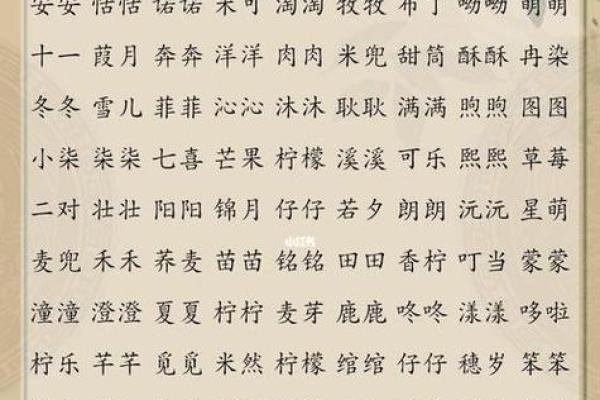 安安 恬恬 诺诺 米可 淘淘 牧牧 布丁 呦呦 萌萌
十一 葭月 奔奔 洋洋 肉肉 米兜 甜筒 酥酥 冉染
冬冬 雪儿 菲菲 沁沁 沐沐 耿耿 满满 煦煦 图图
小柒 柒柒 七喜 芒果 柠檬 溪溪 可乐 熙熙 草莓
二对 壮壮 阳阳 锦月 仔仔 若夕 朗朗 沅沅 星萌
小红书
麦兜 禾禾 荞麦 苗苗 铭铭 田田 香柠 叮当 蒙蒙
潼潼 澄澄 夏夏 柠柠 麦芽 鹿鹿 咚咚 漾漾 哆啦
柠乐 芊芊 觅觅 米然 柠檬 绾绾 仔仔 穗岁 笨笨